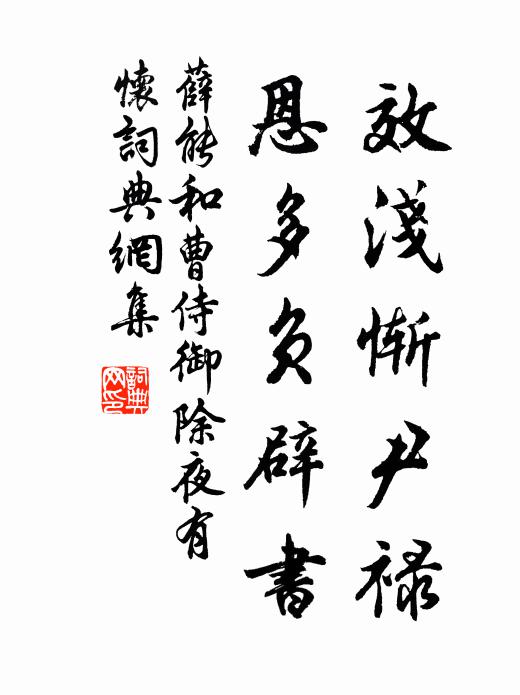 效淺慚尹祿
恩多負辟書
薛能和曹侍御除夜有
懷詞典網集
詞典網印